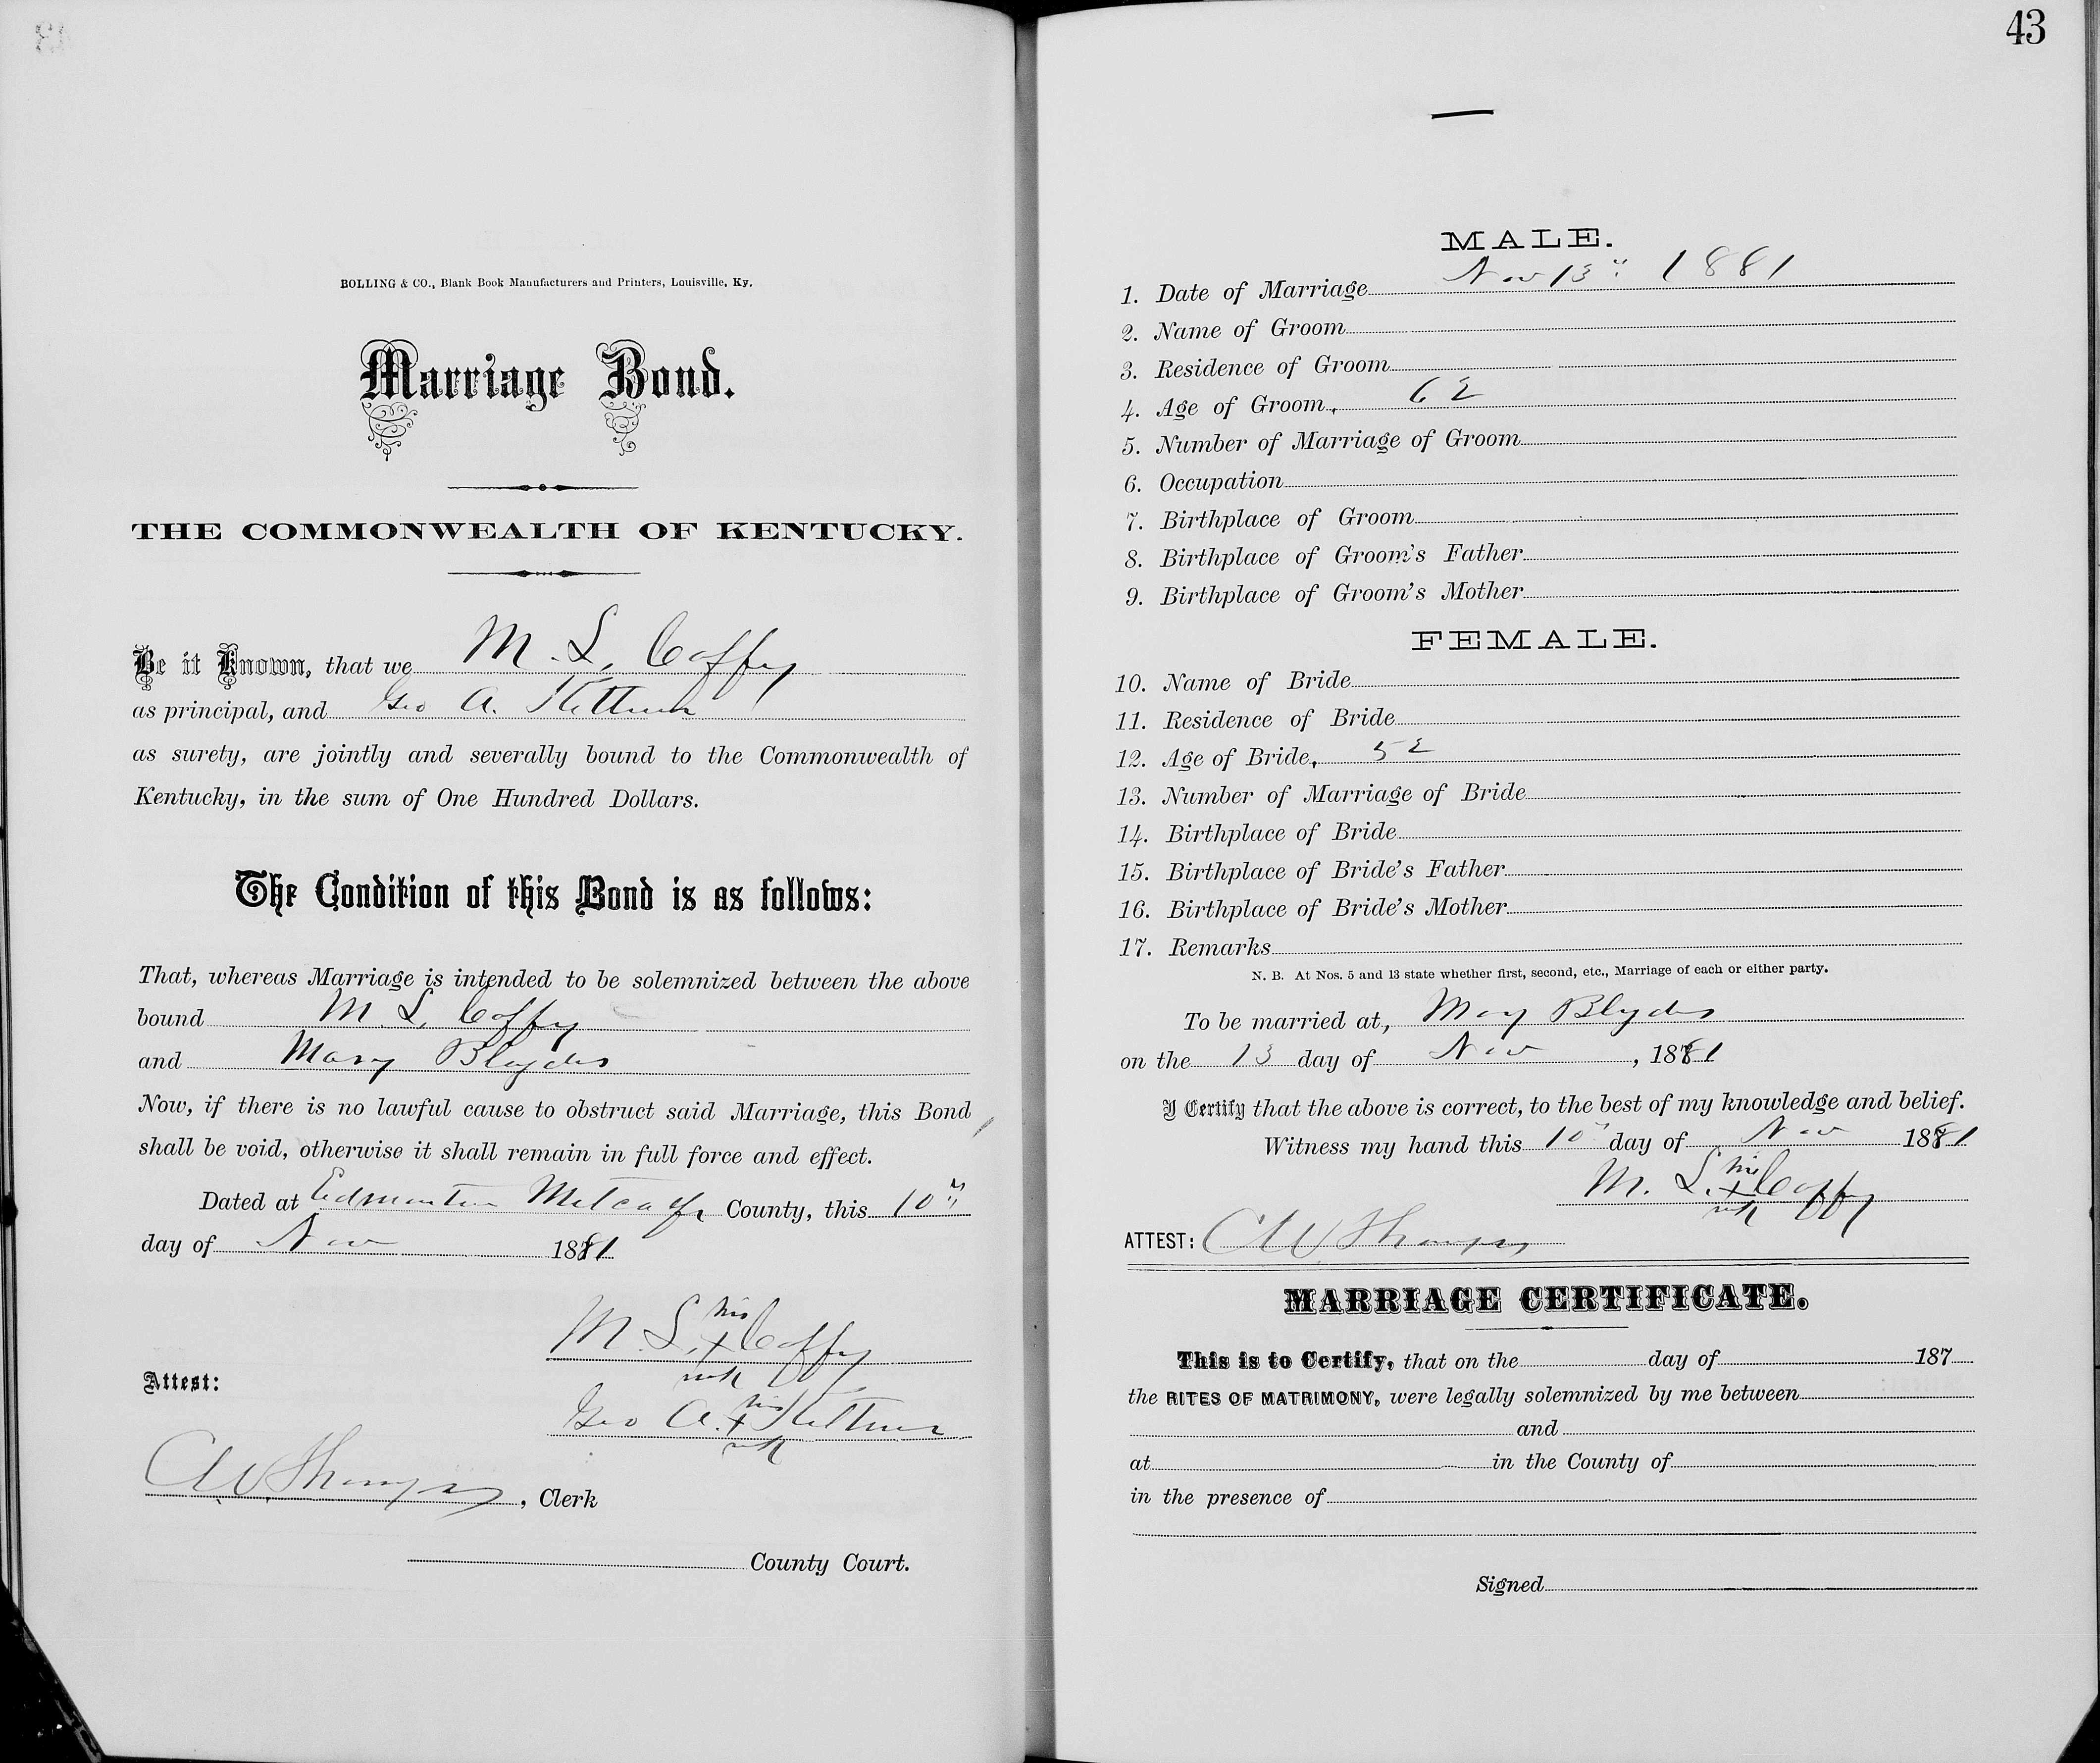 43
BOLLING & CO., Blank Book Manufacturers and Printers, Louisville, Ky.
Marriage Bond.
THE COMMONWEALTH OF KENTUCKY.
Be it Known, that we M. L. Coffy
as principal, and Geo A.
as surety, are jointly and severally bound to the Commonwealth of
Kentucky, in the sum of One Hundred Dollars.
The Condition of this Bond is as follows:
That, whereas Marriage is intended to be solemnized between the above
bound M. L. Coffy
and Mary Blydes
Now, if there is no lawful cause to obstruct said Marriage, this Bond
shall be void, otherwise it shall remain in full force and effect.
Dated at Edmonton Metcalfe County, this 10th
day of Nov 1881
M. L. his x mark Coffy
Attest:
Geo A. his x mark
C W Thompson, Clerk
County Court.
MALE.
1. Date of Marriage Nov 13" 1881
2. Name of Groom
3. Residence of Groom
4. Age of Groom, 62
5. Number of Marriage of Groom
6. Occupation
7. Birthplace of Groom
8. Birthplace of Groom's Father
9. Birthplace of Groom's Mother
FEMALE.
10. Name of Bride
11. Residence of Bride
12. Age of Bride, 52
13. Number of Marriage of Bride
14. Birthplace of Bride
15. Birthplace of Bride's Father
16. Birthplace of Bride's Mother
17. Remarks
N. B. At Nos. 5 and 13 state whether first, second, etc., Marriage of each or either party.
To be married at, Mary Blydes
on the 13 day of Nov, 1881
I Certify that the above is correct, to the best of my knowledge and belief.
Witness my hand this 10" day of Nov 1881
M. L. his x mark Coffy
ATTEST: C W Thompson
MARRIAGE CERTIFICATE.
This is to Certify, that on the day of 187
the RITES OF MATRIMONY, were legally solemnized by me between
and
at in the County of
in the presence of
Signed